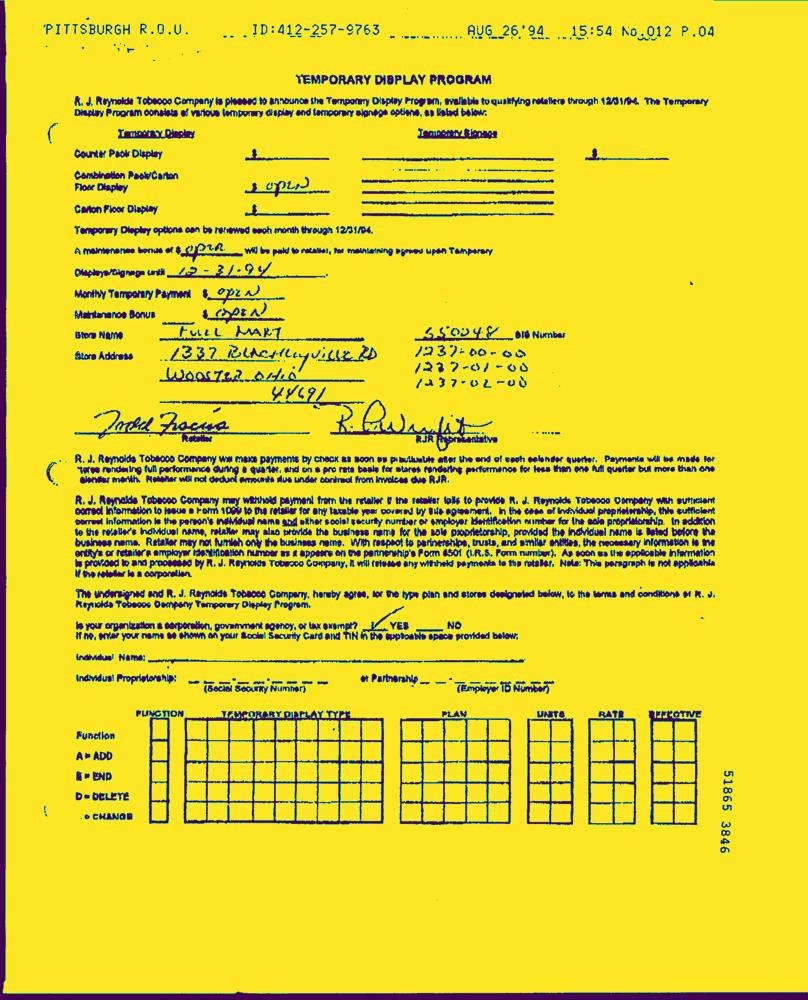 PITTSBURGH R.O.U. ID:412-257-9763 AUG 26'94 15:54 No.012 P.04
TEMPORARY DISPLAY PROGRAM
R. J. Reynolds Tobacco Company is pleased to announce the Temporary Display Program, available to qualifying retailers through 12/31/94. The Temporary
Display Program consists of various temporary display and temporary signage options, as listed below:
Temporary Display Temporary Signage
Counter Pack Display $ $
Combination Pack/Carton
Floor Display $ OPEN
Carton Floor Display $
Temporary Display options can be renewed each month through 12/31/94.
A maintenance bonus of $ OPEN will be paid to retailer, for maintaining agreed upon Temporary
Displays/Signage until 12-31-94
Monthly Temporary Payment $ OPEN
Maintenance Bonus $ OPEN
Store Name FULL MART 550048 SIS Number
Store Address 1337 BLACHLEYVILLE RD 1237-00-00
WOOSTER OHIO 1237-01-00
44691 1237-02-00
Todd
Retailer RJR Representative
R. J. Reynolds Tobacco Company will make payments by check as soon as practicable after the end of each calendar quarter. Payments will be made for
stores rendering full performance during a quarter, and on a pro rata basis for stores rendering performance for less than one full quarter but more than one
calendar month. Retailer will not deduct amounts due under contract from invoices due RJR.
R. J. Reynolds Tobacco Company may withhold payment from the retailer if the retailer fails to provide R. J. Reynolds Tobacco Company with sufficient
correct information to issue a Form 1099 to the retailer for any taxable year covered by this agreement. In the case of individual proprietorship, this sufficient
correct information is the person's individual name and either social security number or employer identification number for the sole proprietorship. In addition
to the retailer's individual name, retailer may also provide the business name for the sole proprietorship, provided the individual name is listed before the
business name. Retailer may not furnish only the business name. With respect to partnerships, trusts, and similar entities, the necessary information is the
entity's or retailer's employer identification number as it appears on the partnership's Form 8501 (I.R.S. Form number). As soon as the applicable information
is provided to and processed by R. J. Reynolds Tobacco Company, it will release any withheld payments to the retailer. Note: This paragraph is not applicable
if the retailer is a corporation.
The undersigned and R. J. Reynolds Tobacco Company, hereby agree, for the type plan and stores designated below, to the terms and conditions of R. J.
Reynolds Tobacco Company Temporary Display Program.
Is your organization a corporation, government agency, or tax exempt? ✓ YES NO
If no, enter your name as shown on your Social Security Card and TIN in the applicable space provided below:
Individual Name:
Individual Proprietorship: or Partnership
(Social Security Number) (Employer ID Number)
FUNCTION TEMPORARY DISPLAY TYPE PLAN UNITS RATE EFFECTIVE
Function
A = ADD
E = END
D = DELETE
= CHANGE
51865 3846